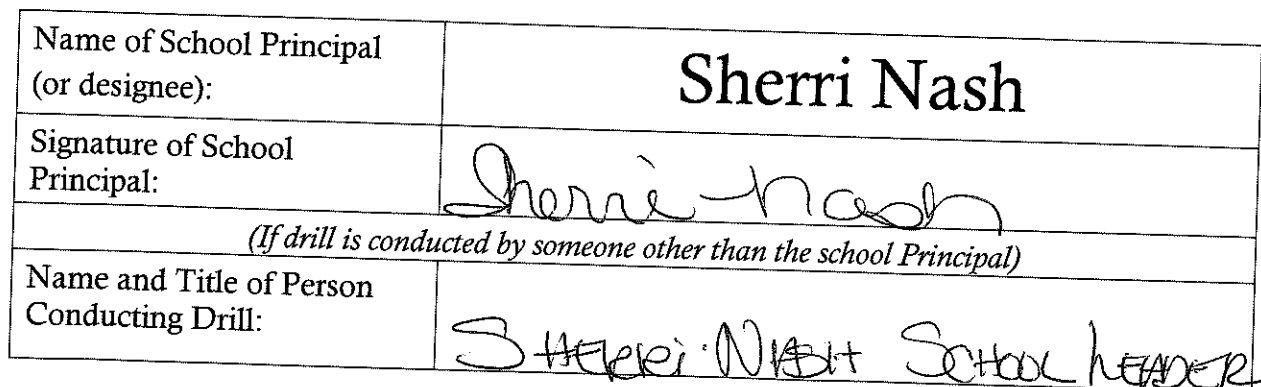 Name of School Principal
(or designee):
Sherri Nash
Signature of School
Principal:
Sherri Nash
(If drill is conducted by someone other than the school Principal)
Name and Title of Person
Conducting Drill:
SHERRi NASH SCHOOL LEADER